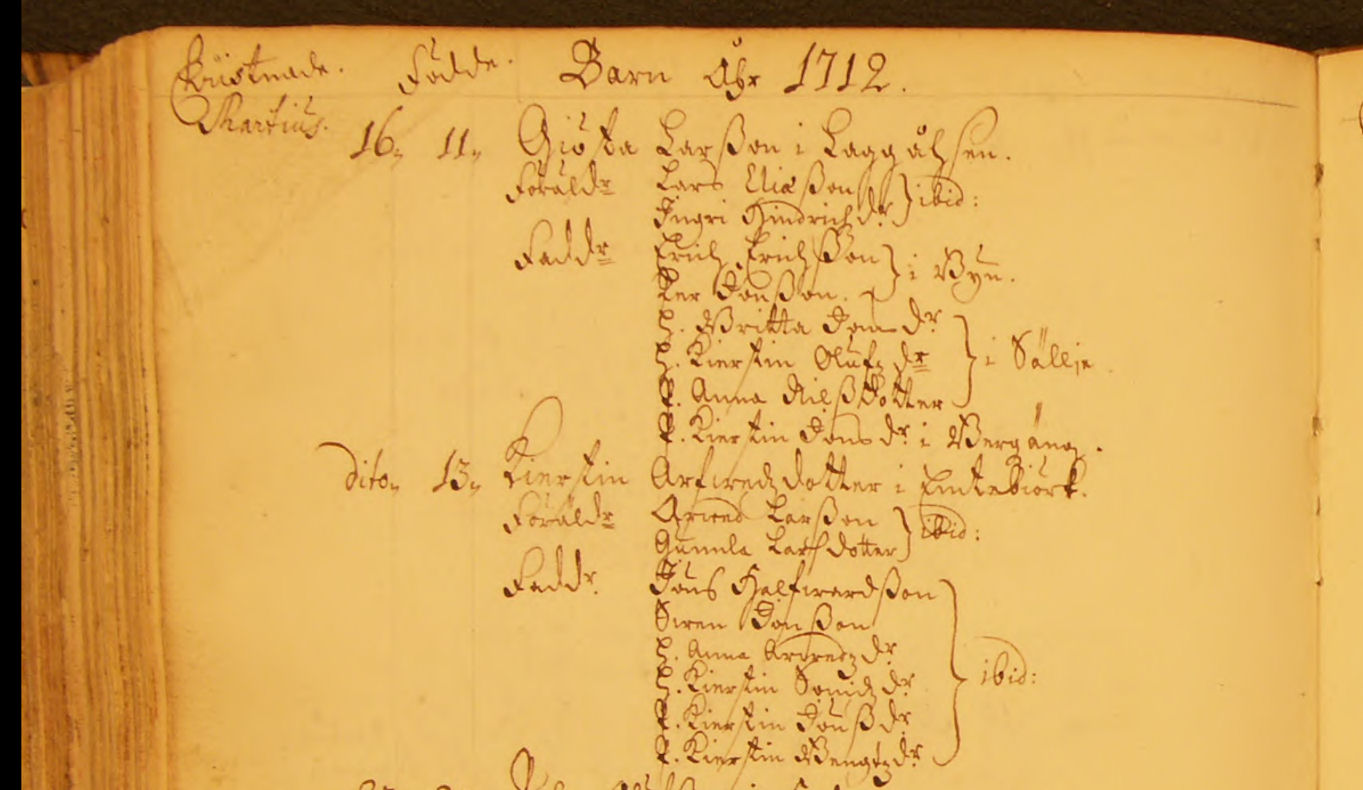 Christnade. Födde. Barn Åhr 1712.
Martius.
16, 11, Giösta Larßon i Laggåhsen.
Föräldr Lars Nilßon } ibid:
Ingri Hindrichdr
Faddr Erich Erichßon } i Byn.
Per Jonßon.
h. Britta Jonsdr
h. Kierstin Olufzdr } i Sällje
P. Anna Nilßdotter
P. Kierstin Jonsdr i Bergäng.
dito, 13, Kierstin Arfwedzdotter i Emtebiörk.
Föräldr Arwed Larßon } ibid:
Gunnla Larsdotter
Faddr. Jöns Halfwardßon
Swen Jonßon
h. Anna Arwedzdr
h. Kierstin dr } ibid:
P. Kierstin Jonßdr
P. Kierstin Bengtzdr